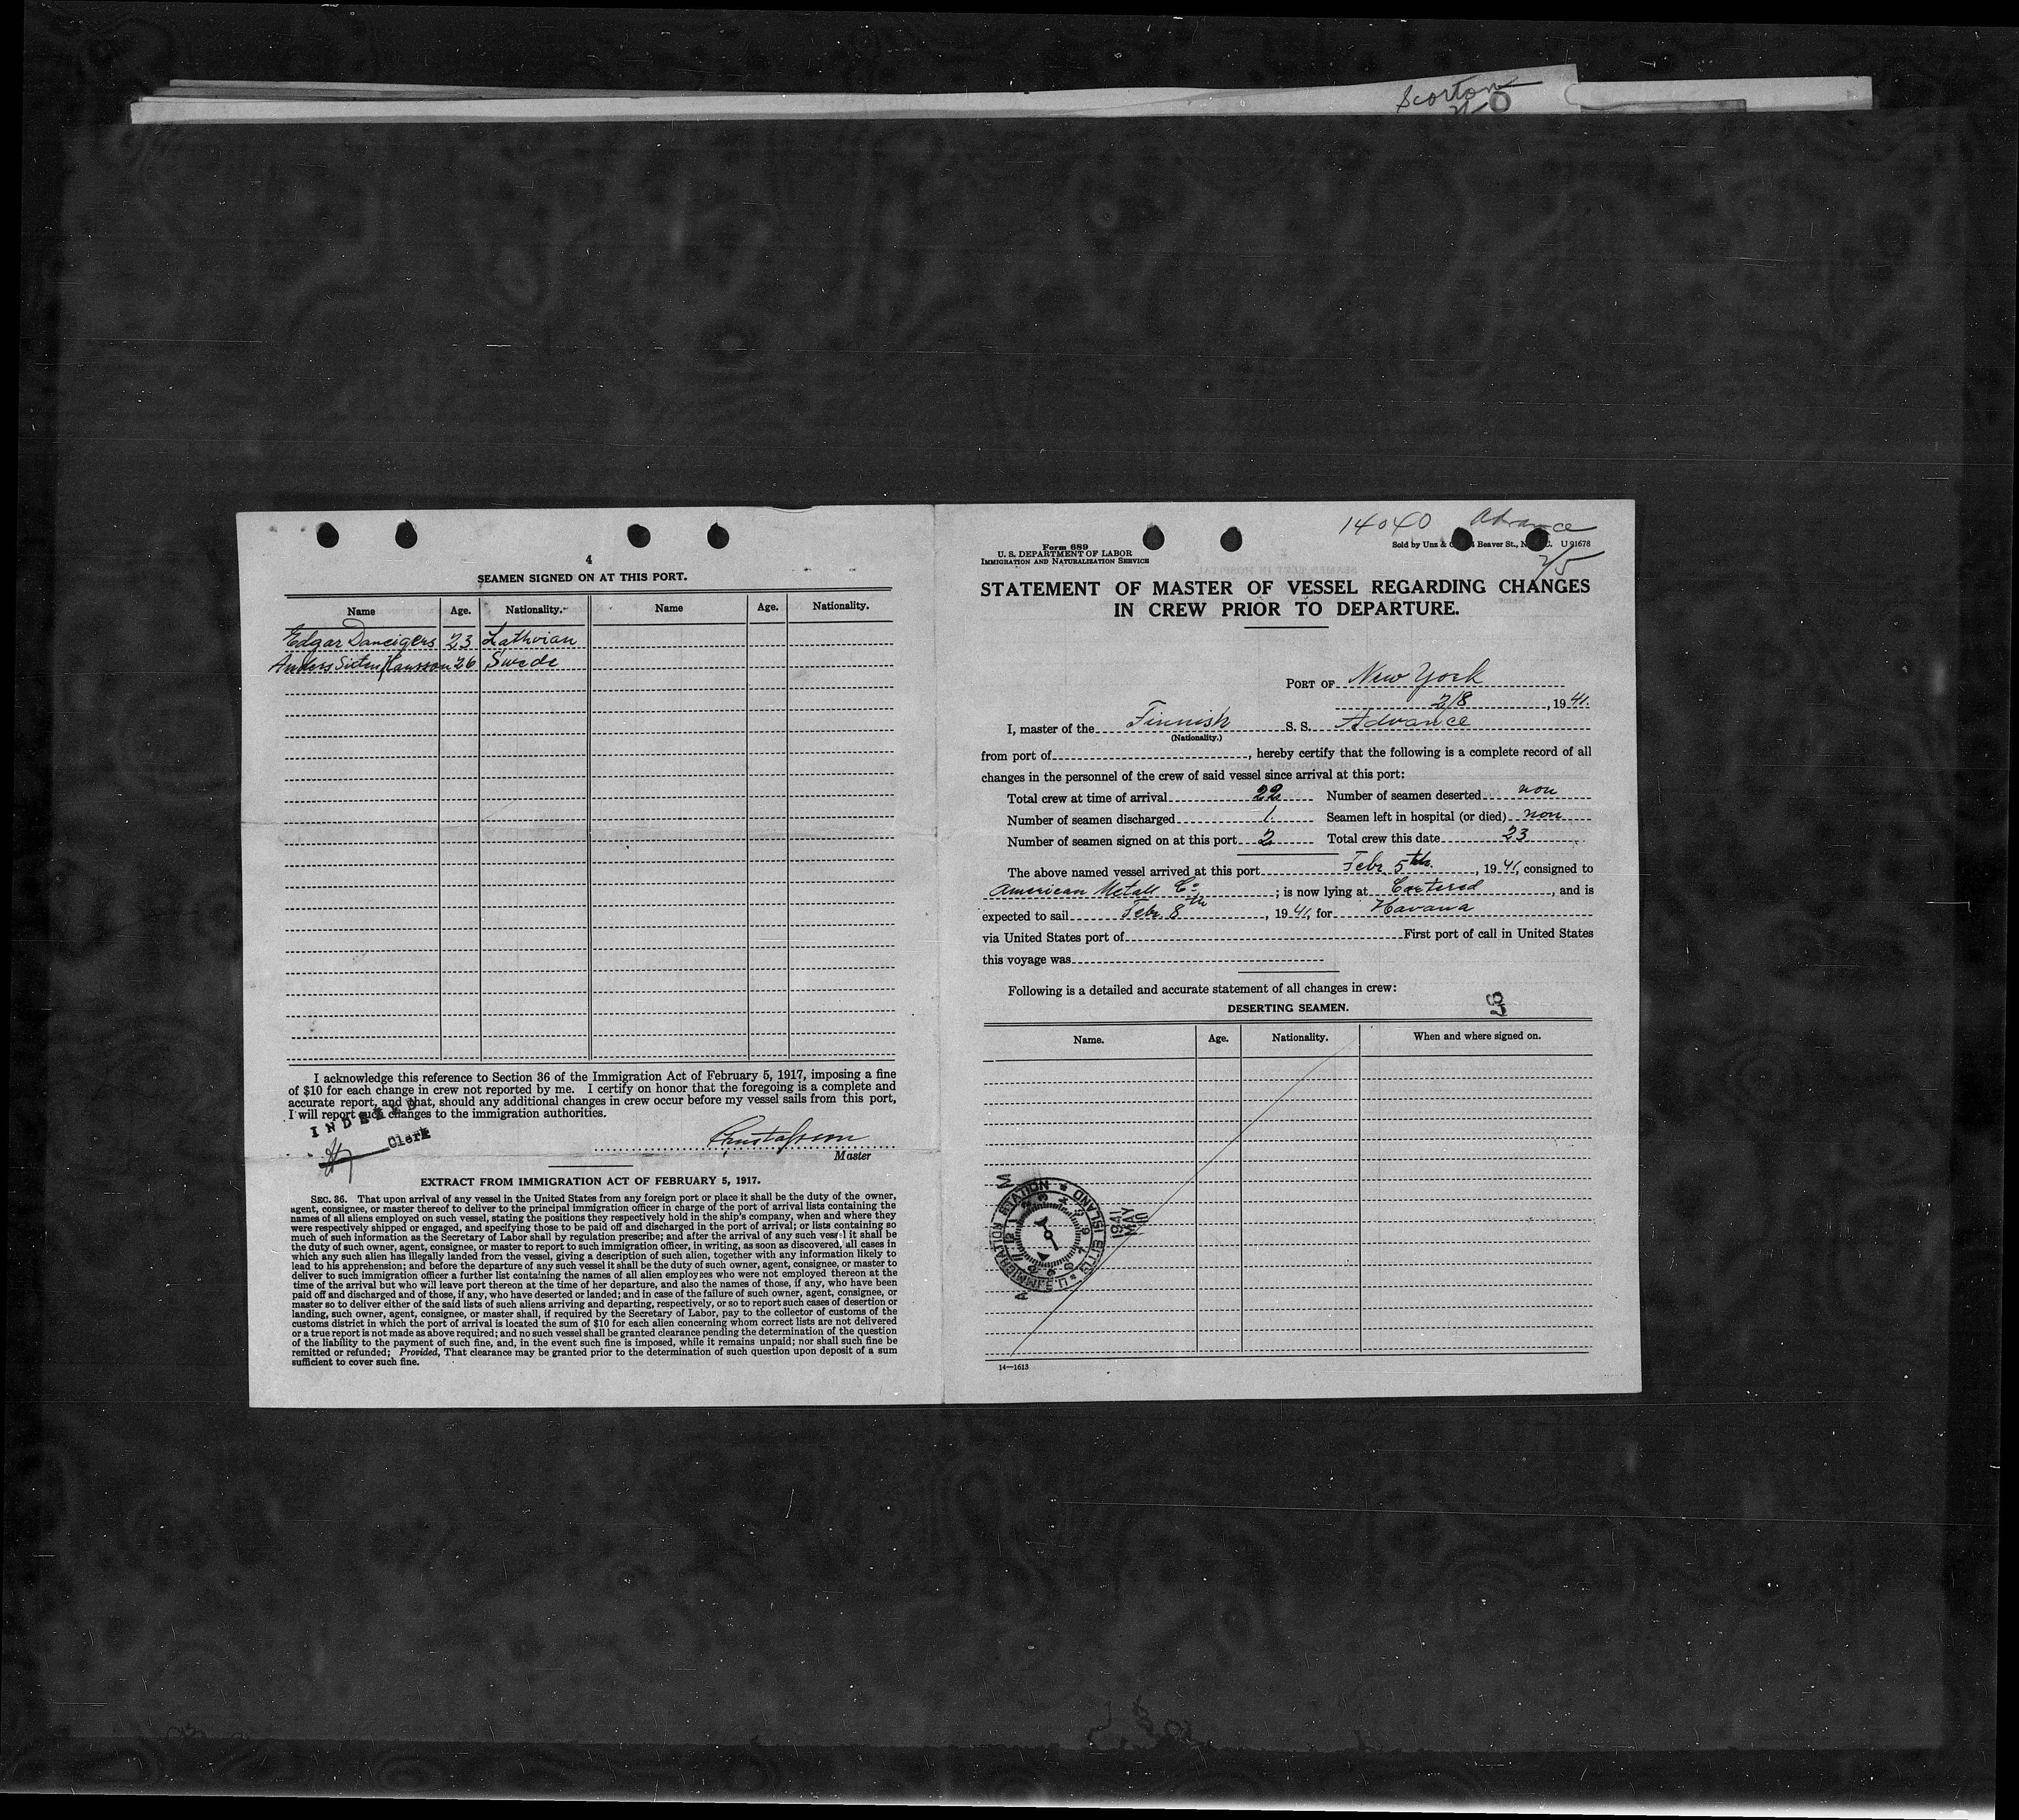 Scorton
4
SEAMEN SIGNED ON AT THIS PORT.
Name Age. Nationality. Name Age. Nationality.
Edgar Dancigers 23 Lathvian
Anders Sixten Hansson 26 Swede
I acknowledge this reference to Section 36 of the Immigration Act of February 5, 1917, imposing a fine
of $10 for each change in crew not reported by me. I certify on honor that the foregoing is a complete and
accurate report, and that, should any additional changes in crew occur before my vessel sails from this port,
I will report such changes to the immigration authorities.
INDEXED
Clerk
Gustafsson
Master
EXTRACT FROM IMMIGRATION ACT OF FEBRUARY 5, 1917.
SEC. 36. That upon arrival of any vessel in the United States from any foreign port or place it shall be the duty of the owner,
agent, consignee, or master thereof to deliver to the principal immigration officer in charge of the port of arrival lists containing the
names of all aliens employed on such vessel, stating the positions they respectively hold in the ship's company, when and where they
were respectively shipped or engaged, and specifying those to be paid off and discharged in the port of arrival; or lists containing so
much of such information as the Secretary of Labor shall by regulation prescribe; and after the arrival of any such vessel it shall be
the duty of such owner, agent, consignee, or master to report to such immigration officer, in writing, as soon as discovered, all cases in
which any such alien has illegally landed from the vessel, giving a description of such alien, together with any information likely to
lead to his apprehension; and before the departure of any such vessel it shall be the duty of such owner, agent, consignee, or master to
deliver to such immigration officer a further list containing the names of all alien employees who were not employed thereon at the
time of the arrival but who will leave port thereon at the time of her departure, and also the names of those, if any, who have been
paid off and discharged and of those, if any, who have deserted or landed; and in case of the failure of such owner, agent, consignee, or
master so to deliver either of the said lists of such aliens arriving and departing, respectively, or so to report such cases of desertion or
landing, such owner, agent, consignee, or master shall, if required by the Secretary of Labor, pay to the collector of customs of the
customs district in which the port of arrival is located the sum of $10 for each alien concerning whom correct lists are not delivered
or a true report is not made as above required; and no such vessel shall be granted clearance pending the determination of the question
of the liability to the payment of such fine, and, in the event such fine is imposed, while it remains unpaid; nor shall such fine be
remitted or refunded; Provided, That clearance may be granted prior to the determination of such question upon deposit of a sum
sufficient to cover such fine.
14040 Advance
2/5
Form 689
U. S. DEPARTMENT OF LABOR
IMMIGRATION AND NATURALIZATION SERVICE
Sold by Unz & Beaver St., N. U 91678
STATEMENT OF MASTER OF VESSEL REGARDING CHANGES
IN CREW PRIOR TO DEPARTURE.
PORT OF New York
2/8, 1941.
I, master of the Finnish S. S. Advance
(Nationality.)
from port of, hereby certify that the following is a complete record of all
changes in the personnel of the crew of said vessel since arrival at this port:
Total crew at time of arrival 22 Number of seamen deserted non
Number of seamen discharged 1. Seamen left in hospital (or died) non
Number of seamen signed on at this port 2 Total crew this date 23
The above named vessel arrived at this port Febr 5th., 1941, consigned to
American Metall Co; is now lying at Cartered, and is
expected to sail Febr. 8th, 1941, for Havana
via United States port of First port of call in United States
this voyage was
Following is a detailed and accurate statement of all changes in crew:
DESERTING SEAMEN.
Name. Age. Nationality. When and where signed on.
U.S. IMMIGRATION STATION ★ ELLIS ISLAND
1941
MAY
10
14—1613